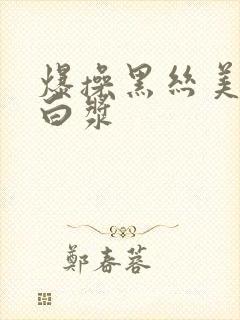 爆操黑丝美
白浆
鄭春蓉